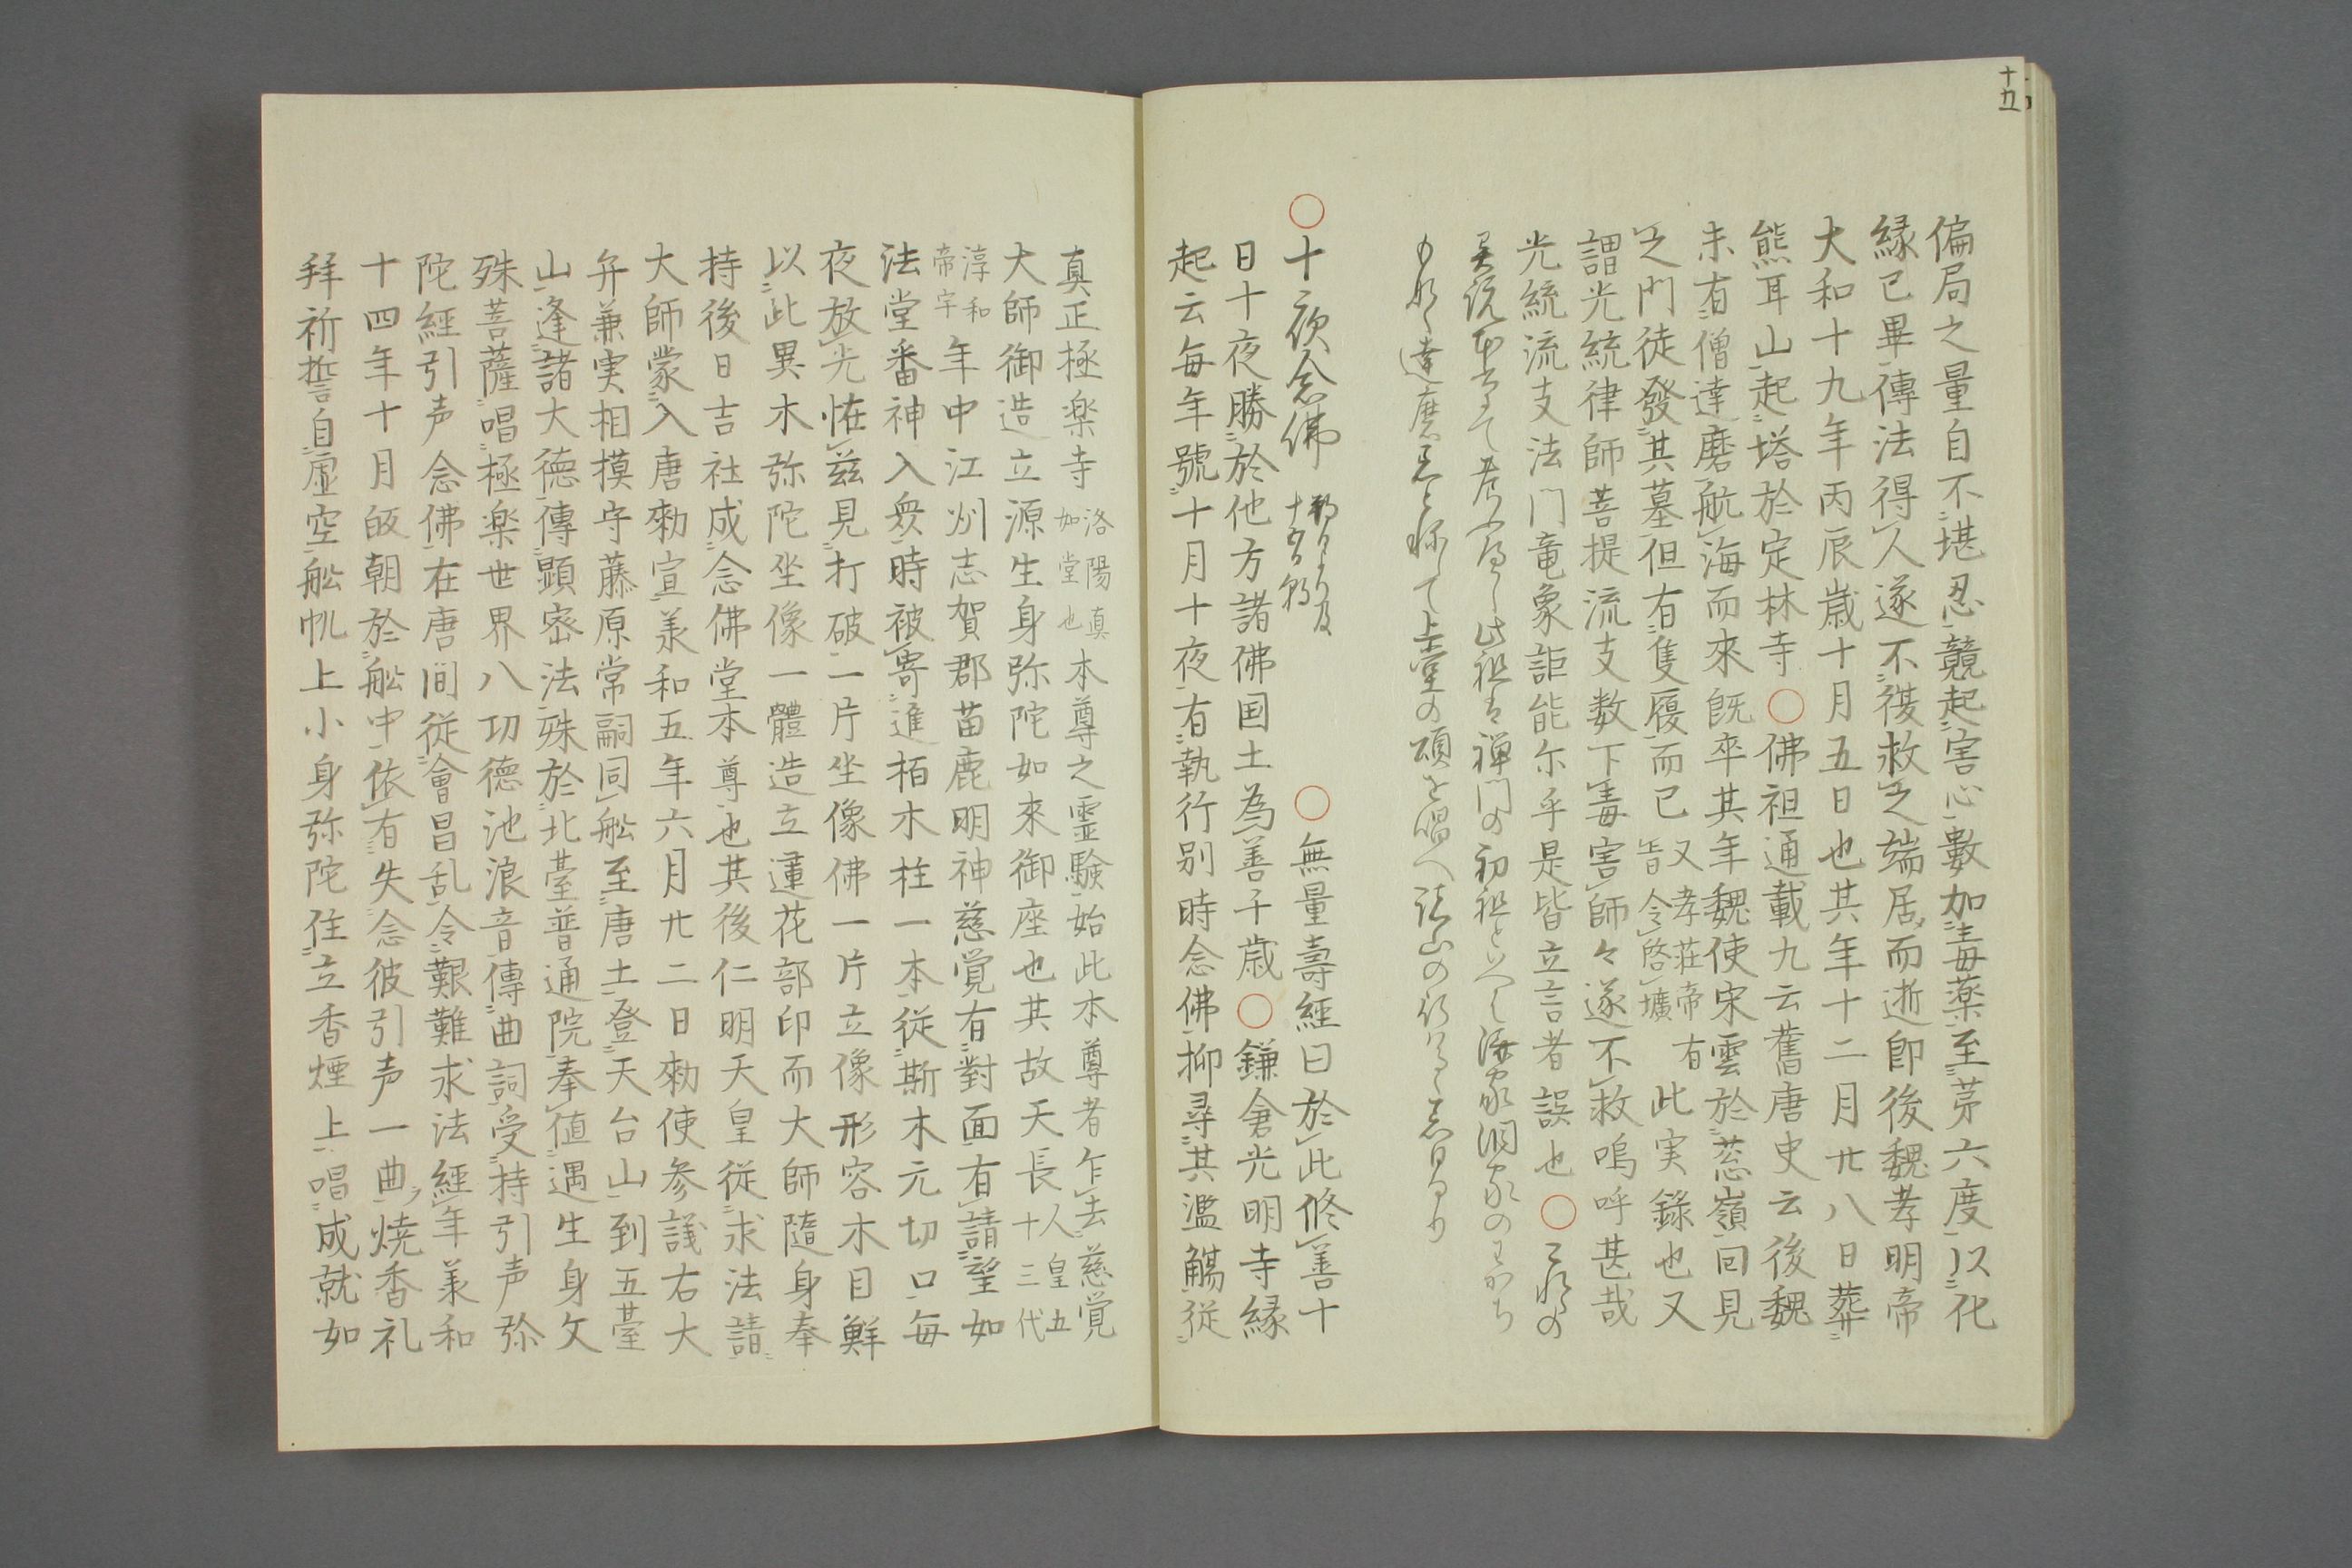 十五
偏局之量自不堪忍競起害心數加毒薬至苐六度以化
縁已畢傳法得人遂不復救之端居而逝卽後魏孝明帝
大和十九年丙辰歳十月五日也其年十二月廿八日葬
熊耳山起塔於定林寺○佛祖通載九云舊唐史云後魏
末有僧達磨航海而來旣卒其年魏使宋雲於葱嶺回見
之門徒發其墓但有隻履而已又孝荘帝有旨令啓壙此実錄也又
謂光統律師菩提流支数下毒害師々遂不救嗚呼甚哉
光統流支法門竜象詎能尓乎是皆立言者誤也○
此祖は禅門の初祖
達磨忌と称して上堂の頌を唱へ
○十夜念佛 ○無量壽經曰於此修善十
日十夜勝於他方諸佛国土為善千歳○鎌倉光明寺縁
起云毎年號十月十夜有執行別時念佛抑尋其濫觴従
真正極楽寺洛陽真如堂也本尊之霊験始此本尊者乍去慈覚
大師御造立源生身弥陀如來御座也其故天長人皇五十三代
淳和帝宇年中江州志賀郡苗鹿明神慈覚有對面有請望如
法堂番神入衆時被寄進栢木柱一本従斯木元切口毎
夜放光恠兹見打破一片坐像佛一片立像形容木目鮮
以此異木弥陀坐像一體造立蓮花部印而大師隨身奉
持後日吉社成念佛堂本尊也其後仁明天皇従求法請
大師蒙入唐勅宣羕和五年六月廿二日勅使参議右大
弁兼実相摸守藤原常嗣同舩至唐土登天台山到五臺
山逢諸大德傳顕密法殊於北臺普通院奉値遇生身文
殊菩薩唱極楽世界八功德池浪音傳曲詞受持引声弥
陀經引声念佛在唐间従會昌乱令艱難求法經年羕和
十四年十月皈朝於舩中依有失念彼引声一曲燒香礼
拜祈誓自虛空舩帆上小身弥陀住立香煙上唱成就如